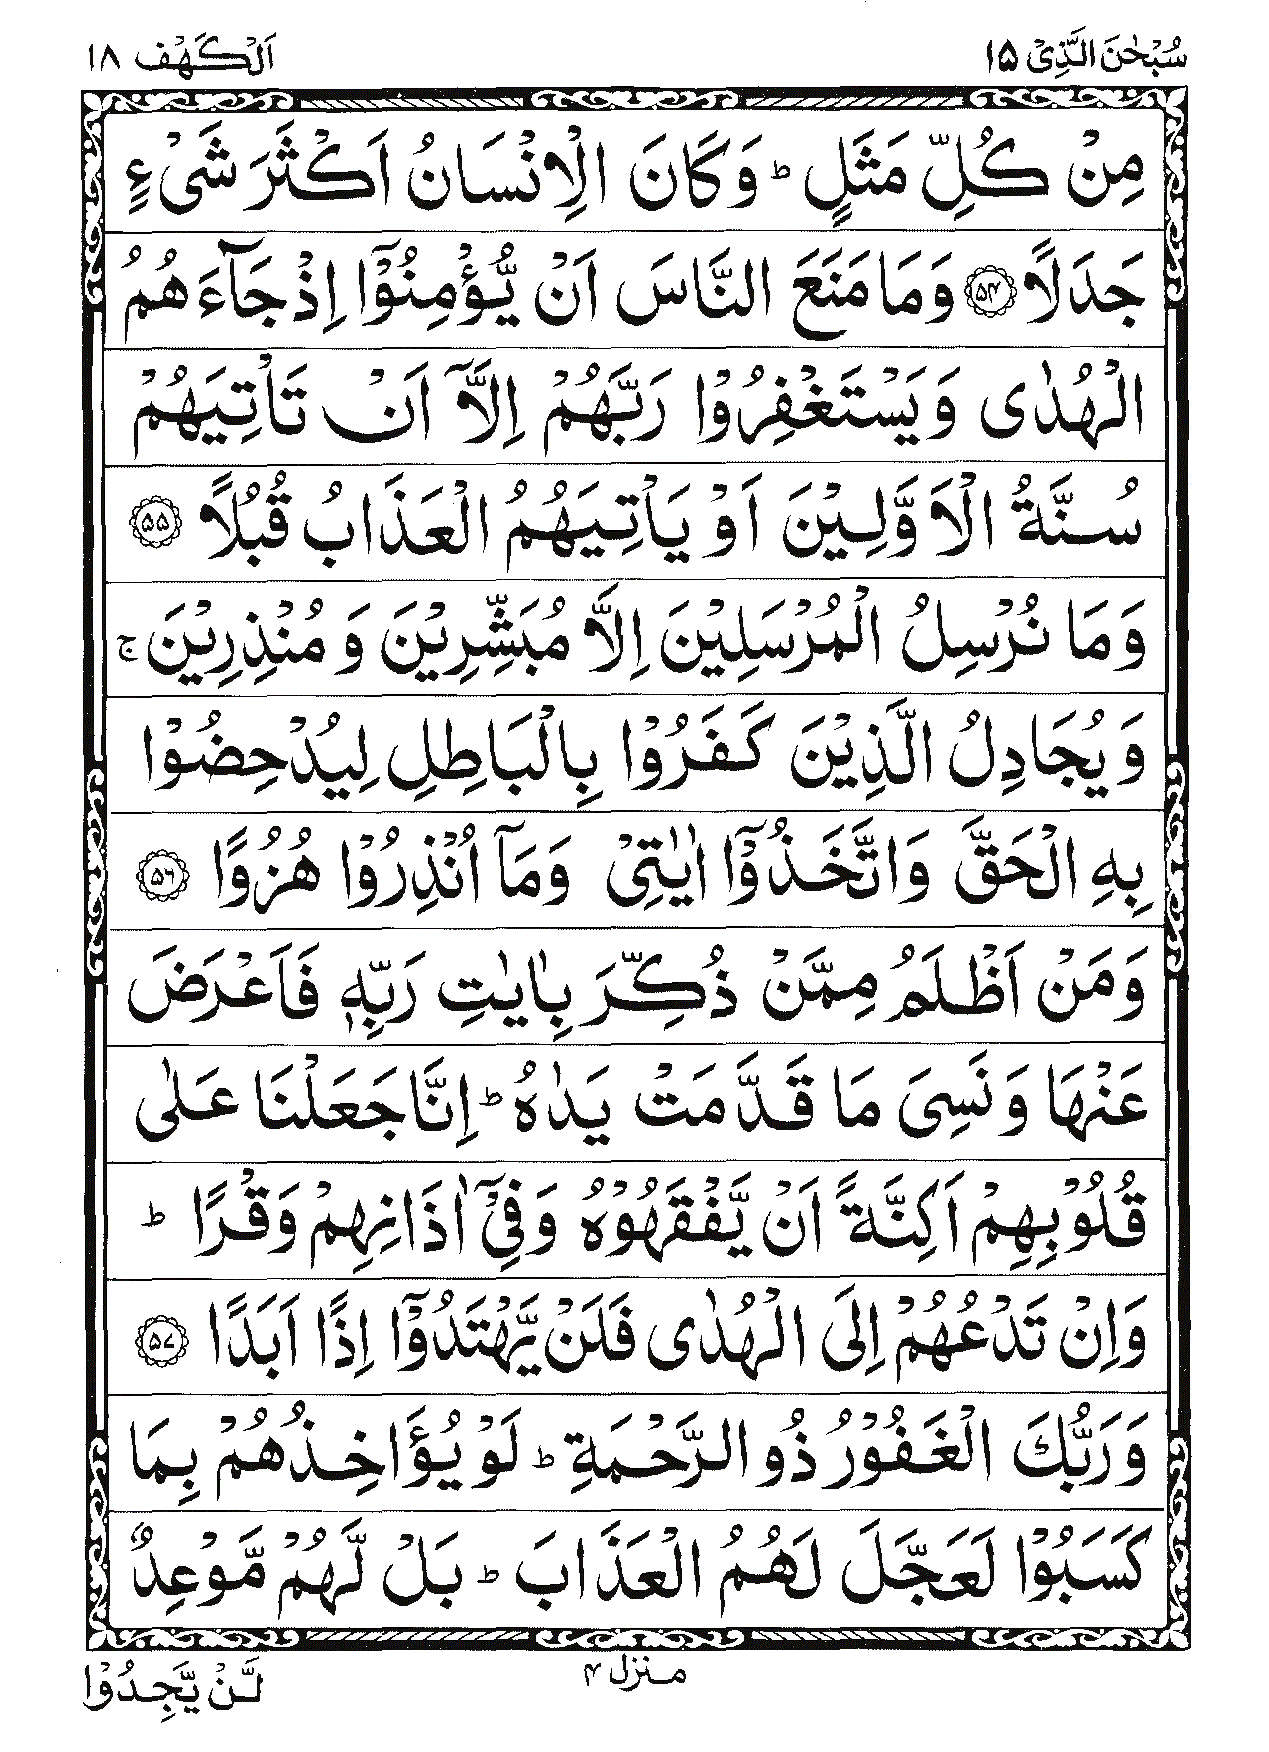 سُبْحٰنَ الَّذِیْ ۱۵
اَلْكَهْف ۱۸
مِنْ كُلِّ مَثَلٍ ؕ وَكَانَ الْاِنْسَانُ اَكْثَرَ شَیْءٍ
جَدَلًا ﴿۵۴﴾ وَمَا مَنَعَ النَّاسَ اَنْ یُّؤْمِنُوْۤا اِذْ جَآءَهُمُ
الْهُدٰی وَیَسْتَغْفِرُوْا رَبَّهُمْ اِلَّاۤ اَنْ تَاْتِیَهُمْ
سُنَّةُ الْاَوَّلِیْنَ اَوْ یَاْتِیَهُمُ الْعَذَابُ قُبُلًا ﴿۵۵﴾
وَمَا نُرْسِلُ الْمُرْسَلِیْنَ اِلَّا مُبَشِّرِیْنَ وَ مُنْذِرِیْنَ ۚ
وَیُجَادِلُ الَّذِیْنَ كَفَرُوْا بِالْبَاطِلِ لِیُدْحِضُوْا
بِهِ الْحَقَّ وَاتَّخَذُوْۤا اٰیٰتِیْ وَمَاۤ اُنْذِرُوْا هُزُوًا ﴿۵۶﴾
وَمَنْ اَظْلَمُ مِمَّنْ ذُكِّرَ بِاٰیٰتِ رَبِّهٖ فَاَعْرَضَ
عَنْهَا وَنَسِیَ مَا قَدَّمَتْ یَدٰهُ ؕ اِنَّا جَعَلْنَا عَلٰی
قُلُوْبِهِمْ اَكِنَّةً اَنْ یَّفْقَهُوْهُ وَفِیْۤ اٰذَانِهِمْ وَقْرًا ؕ
وَاِنْ تَدْعُهُمْ اِلَی الْهُدٰی فَلَنْ یَّهْتَدُوْۤا اِذًا اَبَدًا ﴿۵۷﴾
وَرَبُّكَ الْغَفُوْرُ ذُو الرَّحْمَةِ ؕ لَوْ یُؤَاخِذُهُمْ بِمَا
كَسَبُوْا لَعَجَّلَ لَهُمُ الْعَذَابَ ؕ بَلْ لَّهُمْ مَّوْعِدٌ
منزل ۴
لَّنْ یَّجِدُوْا